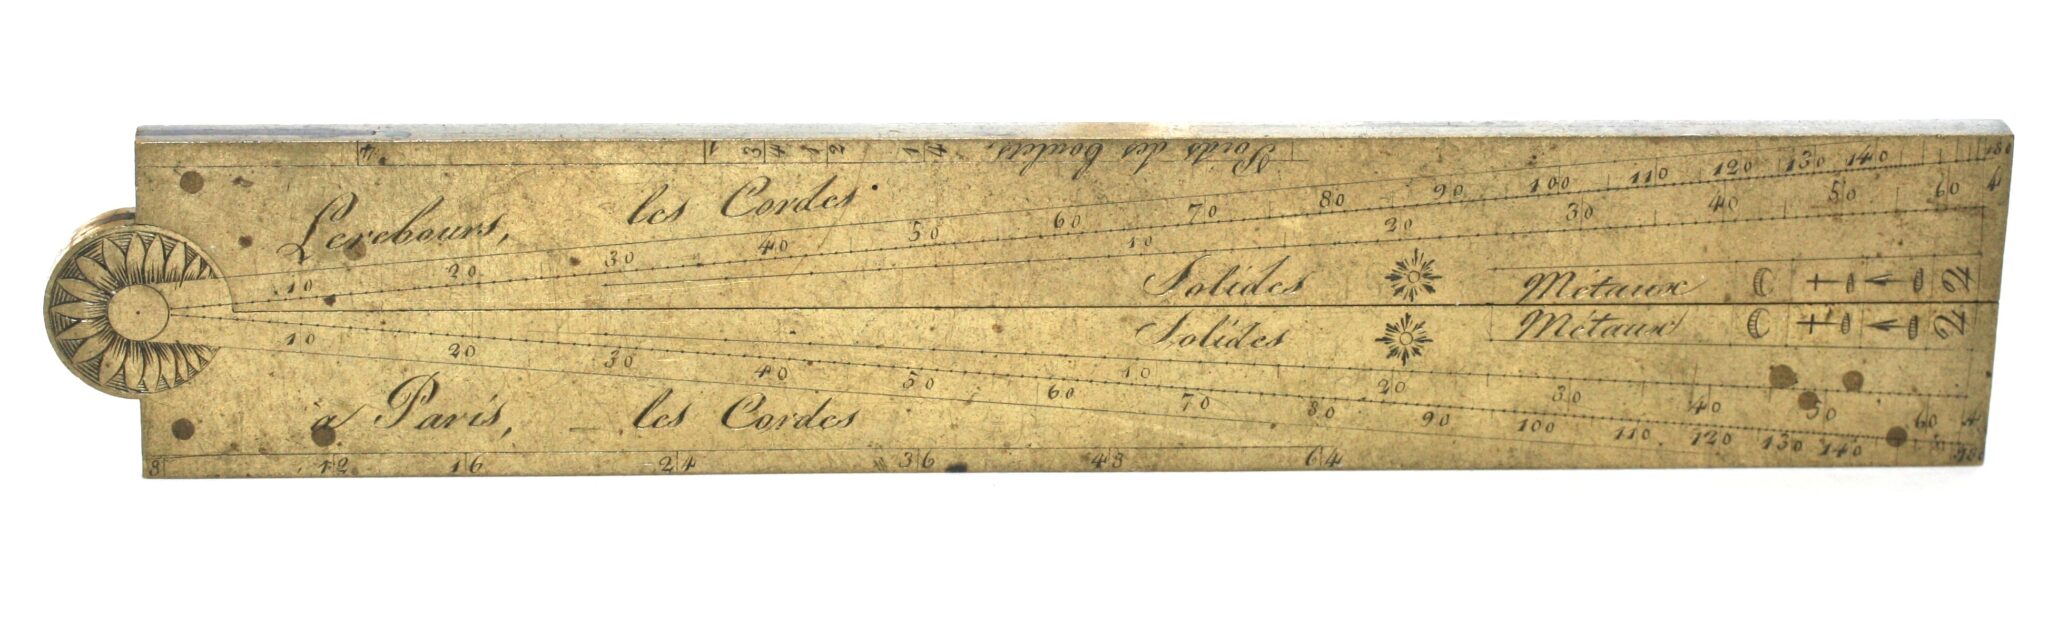 Poids des boulets
Lerebours, les Cordes
10 20 30 40 50 60 70 80 90 100 110 120 130 140 180
10 20 30 40 50 60
Solides Métaux
Solides Métaux
10 20 30 40 50 60
10 20 30 40 50 60 70 80 90 100 110 120 130 140 180
à Paris, les Cordes
8 12 16 24 36 48 64